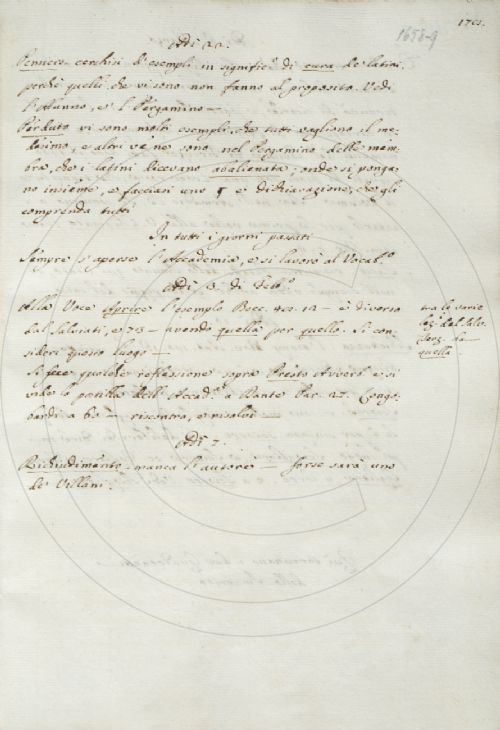 1701.
1658-9
Adì 22.
cerchisi d'esempli in signific.º di cura de latini,
perchè quelli che vi sono non fanno al proposito. Vedi
l'Alunno, e l Pergamino —
Perduto vi sono molti esempli, che tutti vagliono il me-
desimo, e altri ve ne sono nel Pergamino delle mem-
bra, che i latini dicevano abalienata, onde si ponga-
no insieme, e facciasi uno ¶ e dichiarazione, che gli
comprenda tutti
In tutti i giorni passati
Sempre s'aperse l'Accademia, e si lavorò al Vocab.º
Adì 3. di Feb.º
Alla Voce Aprire l'esemplo Bocc. 12 — è diverso
dal Salviati, e 23 — avendo quella per quello. Si con-
sideri questo luogo —
tra le varie
lez. del Salv.
quella
Si fece qualche reflessione sopra Presto Avverb. e si
vide la postilla dell'Accad. a Dante Par. 27.
a 60 — riscontra, e risolvi —
Adì 7.
manca l'autore — forse sarà uno
de' Villani.